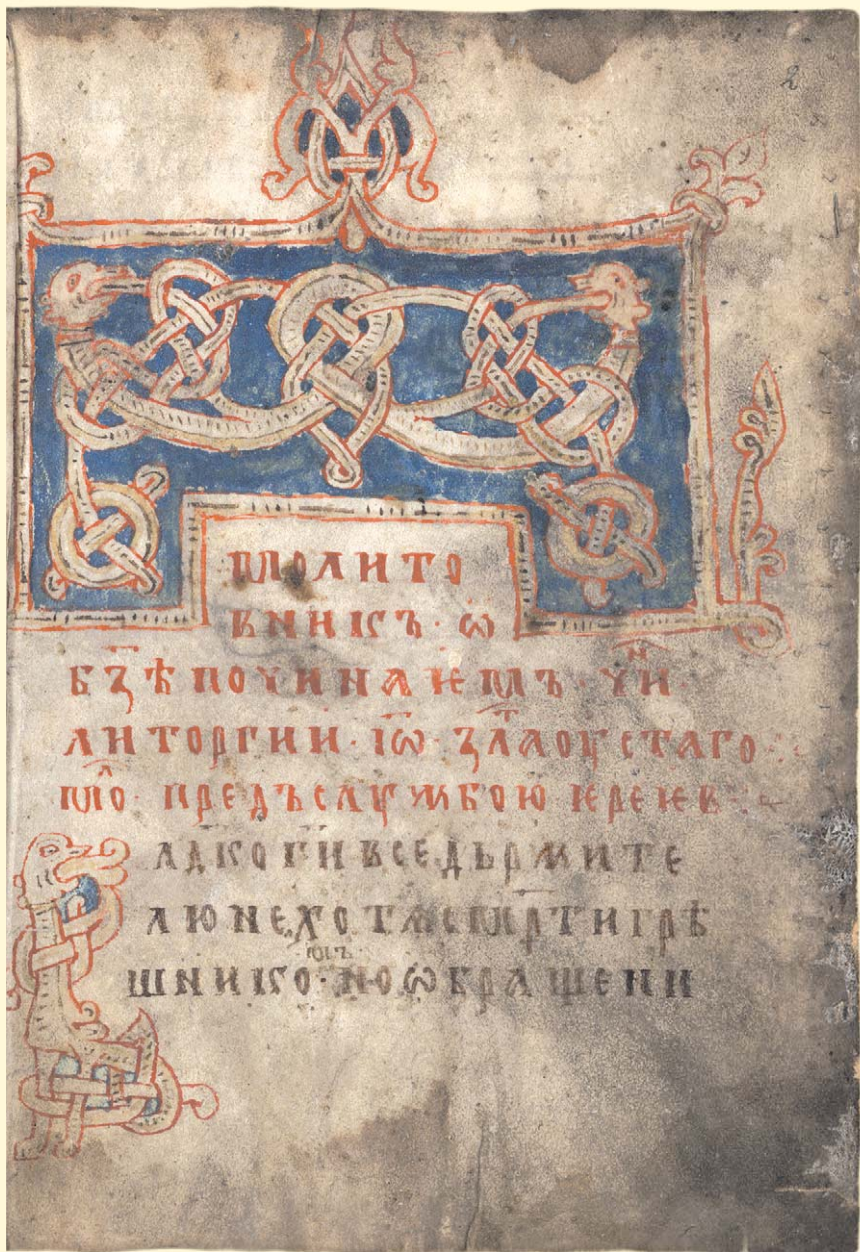 2
молито
вникъ · ѡ
бз҃ѣ починаемъ · чи ͩн ·
литоргии · іѡ҃ · зла ͭоустаго
мо ͧл · предъслужбою иерѣев
лад҃ко г҃и вседьржите
лю не хотѧ см҃рти грѣ
шнико мъ · но ѡбращени